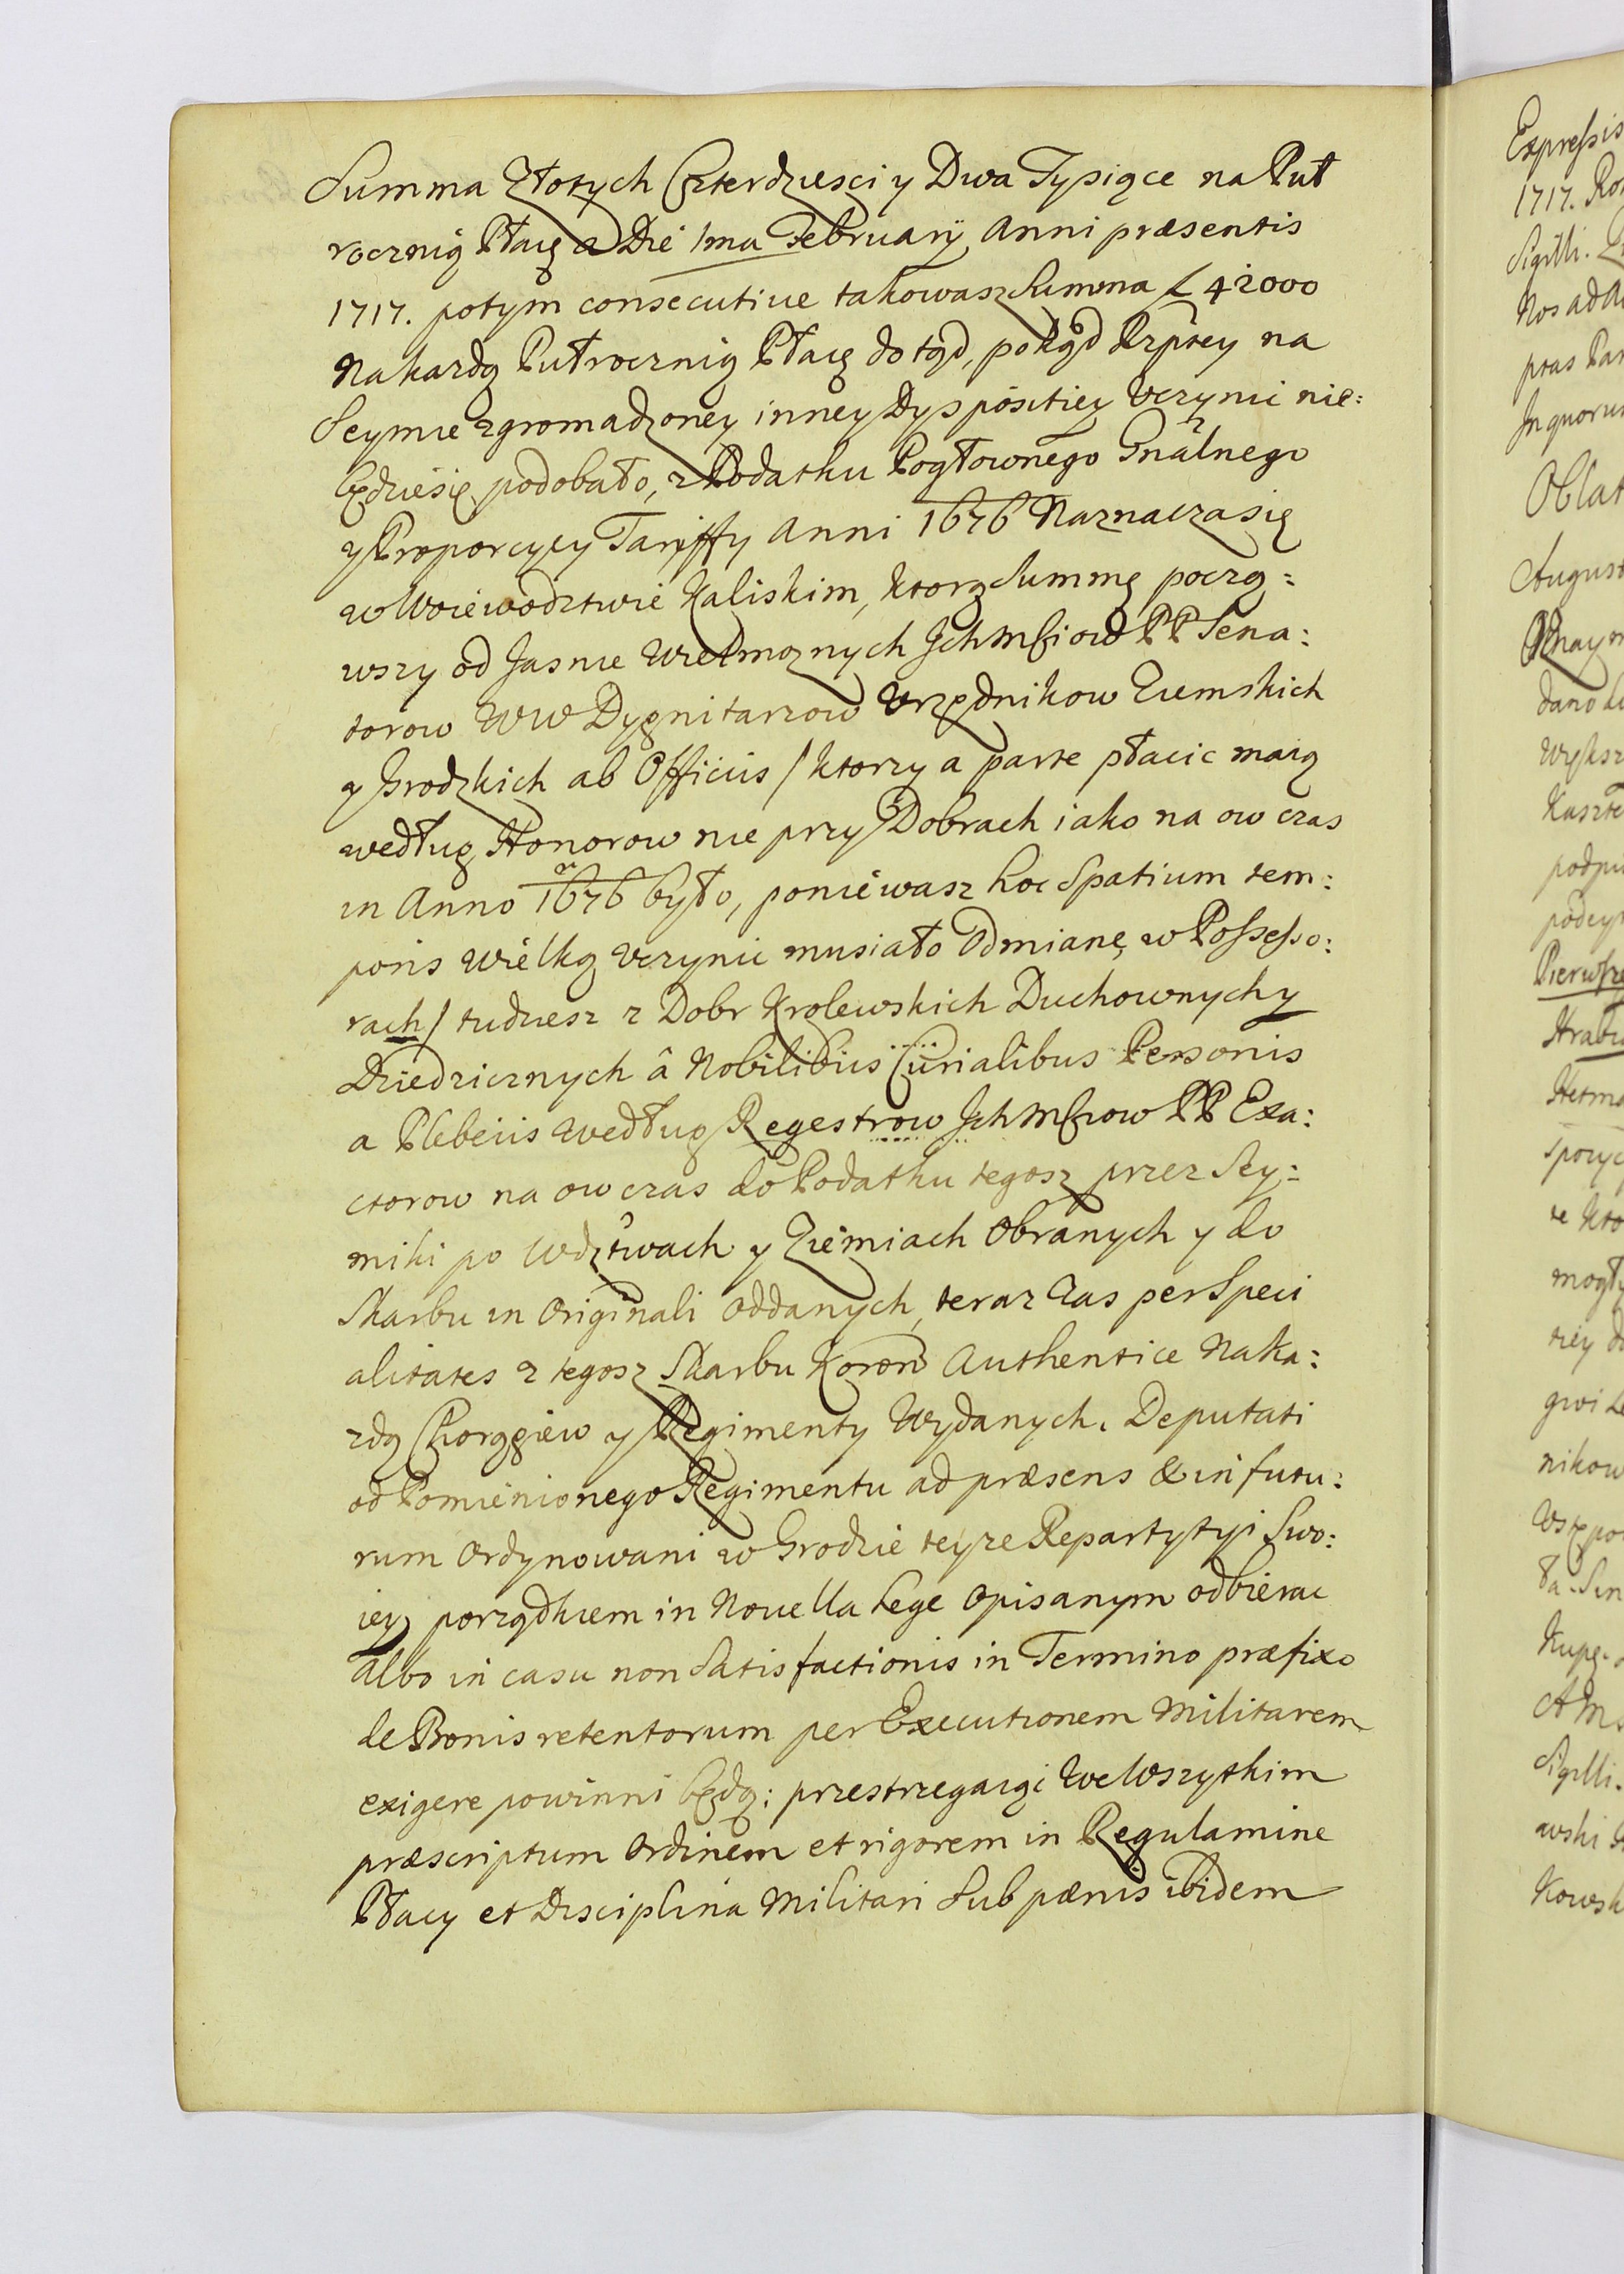 Summa Złotych Czterdziesci y Dwa Tysiące na Puł
rocznią Płacę a Die 1ma February Anni præsentis
1717. potym consecutive takowasz Summa ƚ 42000
Nakazdą Pułrocznią Płacę dotąd, pokąd Rzptey na
Seymie zgromadzoney inney Dyspositiey Uczynić nie:
będziesię podobało, z Podatku Pogłownego Gnalnego
y Proporcyey Taryffy Anni 1676 Naznaczasię
w Woiewodztwie Kaliskim, ktorą Summę począ:
wszy od Jasnie Wielmoznych Jchmściow PP Sena:
torow WW Dygnitarzow Urzędnikow Ziemskich
y Grodzkich ab Officiis / ktorzy a parte płacic maią
według Honorow nie przy Dobrach iako na ow czas
in Anno 1676 było, poniewasz hoc Spatium tem:
poris Wielką Uczynic musiało Odmianę w Possesso:
rach / tudziesz z Dobr Krolewskich Duchownych y
Dziedzicznych â Nobilibus Curialibus Personis
a Plebeiis według Regestrow Jchmściow PP Exa:
ctorow na ow czas do Podatku tegosz przez Sey:
miki po Wdztwach y Ziemiach Obranych y do
Skarbu in Originali oddanych, teraz Zas per Speci
alitates z tegosz Skarbu Koron Authentice Naka:
zdą Chorągiew y Regimenty Wydanych. Deputati
od Pomienionego Regimentu ad præsens & in futu:
rum Ordynowani w Grodzie teyze Repartytyi Swo:
iey, porządkiem in Novella Lege Opisanym odbierac
albo in casu non Satisfactionis in Termino præfixo
de Bonis retentorum per Executionem Militarem
exigere powinni będą: przestrzegaiąc We Wszytkim
præscriptum Ordinem et rigorem in Regulamine
Płacy et Disciplina Militari Sub pænis ibidem